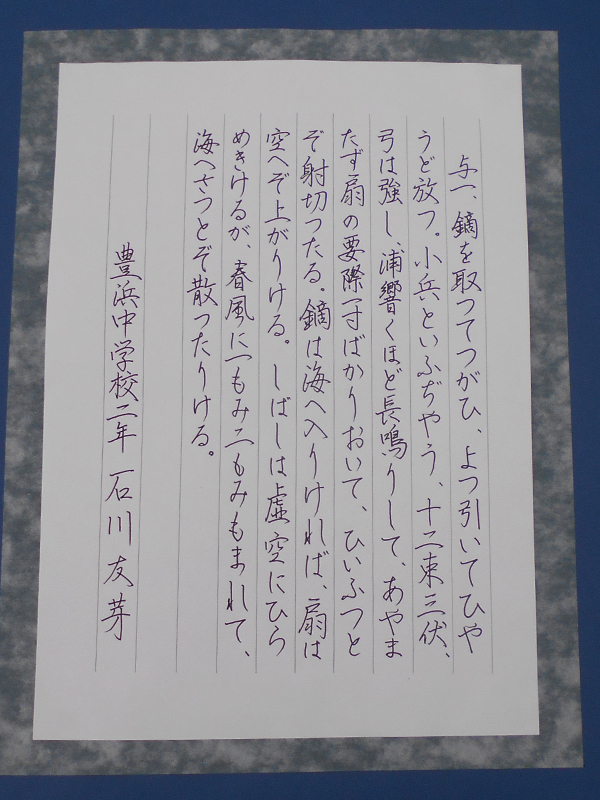 与一、鏑を取つてつがひ、よつ引いてひや
うど放つ。小兵といふぢやう、十二束三伏、
弓は強し、浦響くほど長鳴りして、あやま
たず扇の要際一寸ばかりおいて、ひいふつと
ぞ射切つたる。鏑は海へ入りければ、扇は
空へぞ上がりける。しばしは虚空にひら
めきけるが、春風に一もみ二もみもまれて、
海へさつとぞ散つたりける。
豊浜中学校二年 石川友芽